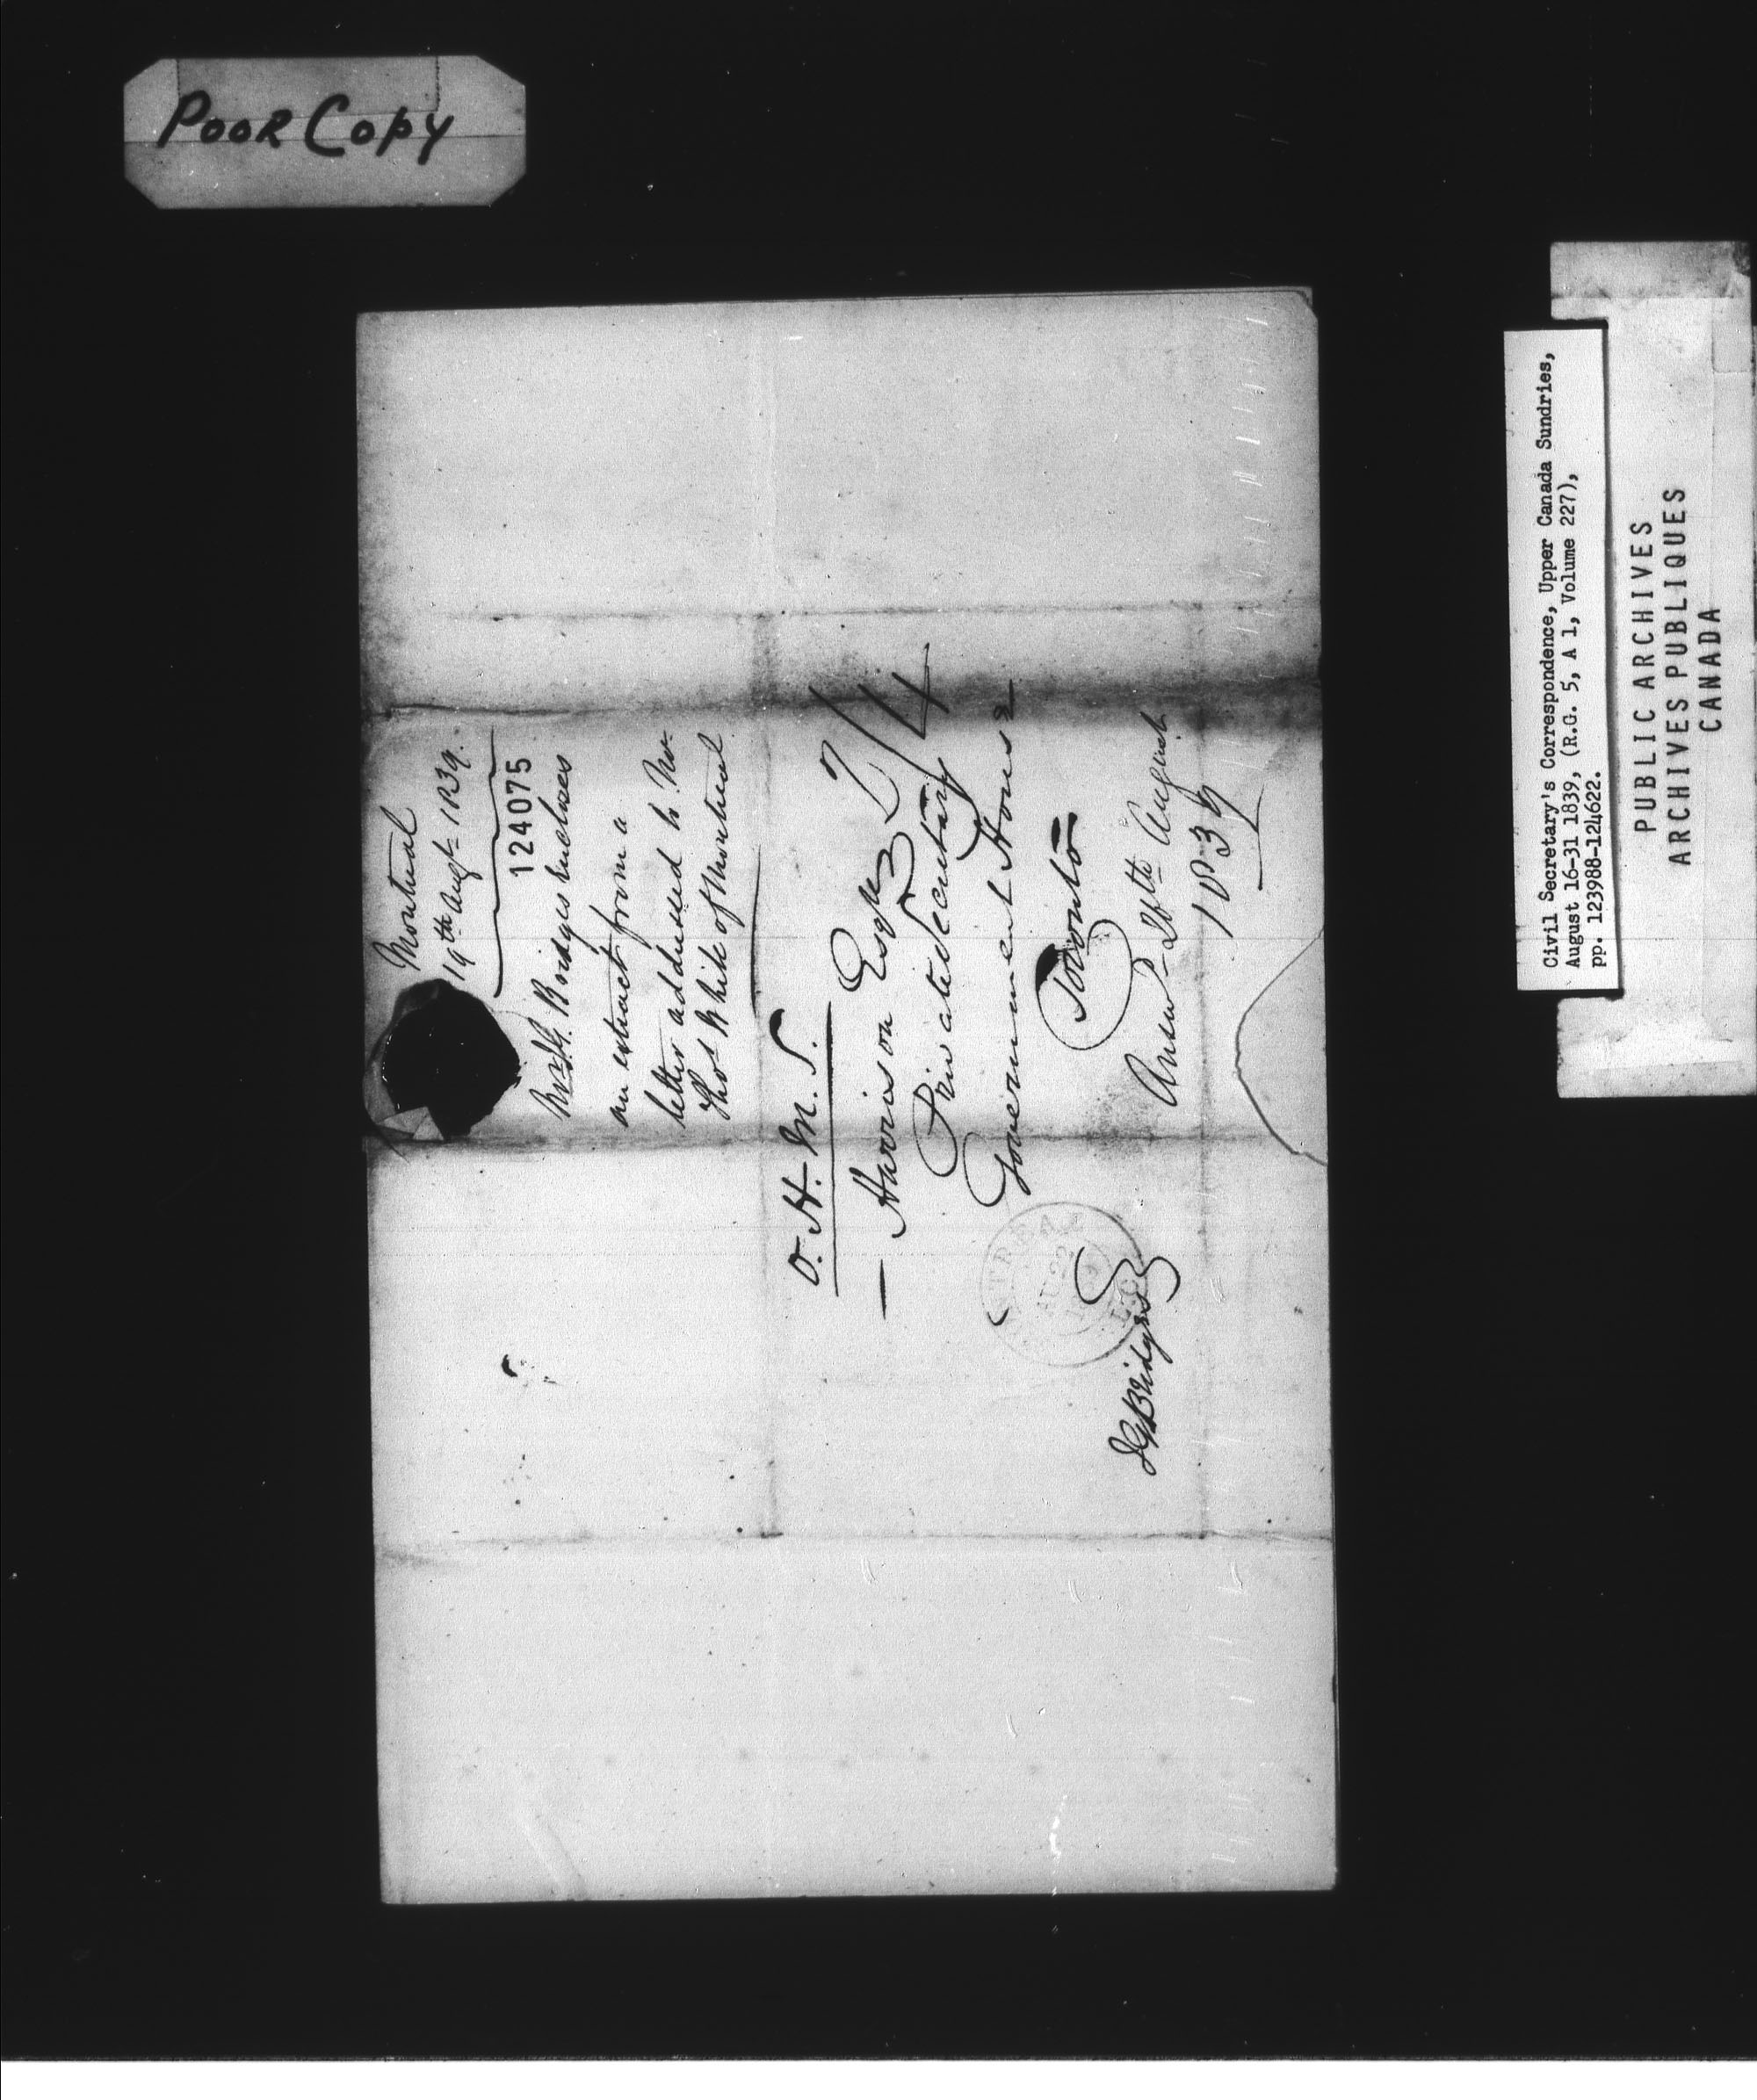 Poor Copy
Montreal
19th Augt 1839.
124075
Mr J.G. Bridges encloses
an extract from a
letter addressed to Mr
Thos White of Montreal
O. H. M. S.
— Harrison Esqr
Private Secretary
Government House
Toronto
Answd 26th August
1839
JGBridges
AU 22
L.C
Civil Secretary's Correspondence, Upper Canada Sundries,
August 16-31 1839, (R.G. 5, A 1, Volume 227),
pp. 123988-124622.
PUBLIC ARCHIVES
ARCHIVES PUBLIQUES
CANADA